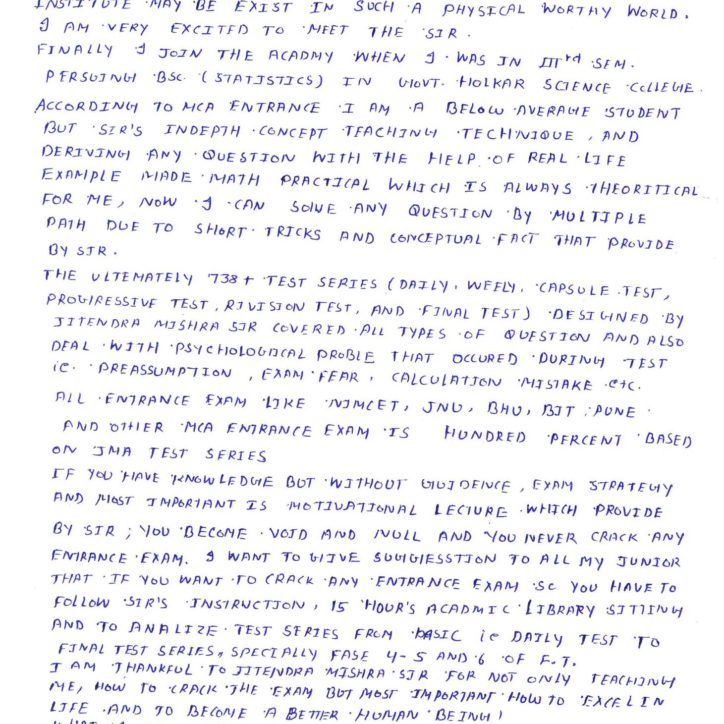 INSTITUTE MAY BE EXIST IN SUCH A PHYSICAL WORTHY WORLD.
I AM VERY EXCITED TO MEET THE SIR.
FINALLY I JOIN THE ACADMY WHEN I WAS IN IIIrd SEM.
PERSUING BSC. (STATISTICS) IN GOVT. HOLKAR SCIENCE COLLEGE.
ACCORDING TO MCA ENTRANCE I AM A BELOW AVERAGE STUDENT
BUT SIR'S INDEPTH CONCEPT TEACHING TECHNIQUE, AND
DERIVING ANY QUESTION WITH THE HELP OF REAL LIFE
EXAMPLE MADE MATH PRACTICAL WHICH IS ALWAYS THEORITICAL
FOR ME, NOW I CAN SOLVE ANY QUESTION BY MULTIPLE
PATH DUE TO SHORT TRICKS AND CONCEPTUAL FACT THAT PROVIDE
BY SIR.
THE ULTEMATELY 738+ TEST SERIES (DAILY, WEFLY, CAPSULE TEST,
PROGRESSIVE TEST, RIVISION TEST, AND FINAL TEST) DESIGNED BY
JITENDRA MISHRA SIR COVERED ALL TYPES OF QUESTION AND ALSO
DEAL WITH PSYCHOLOGICAL PROBLE THAT OCCURED DURING TEST
ie. PREASSUMPTION, EXAM FEAR, CALCULATION MISTAKE etc.
ALL ENTRANCE EXAM LIKE NIMCET, JNU, BHU, BIT, PUNE
AND OTHER MCA ENTRANCE EXAM IS HUNDRED PERCENT BASED
ON JMA TEST SERIES
IF YOU HAVE KNOWLEDGE BUT WITHOUT GUIDENCE, EXAM STRATEGY
AND MOST IMPORTANT IS MOTIVATIONAL LECTURE WHICH PROVIDE
BY SIR; YOU BECOME VOID AND NULL AND YOU NEVER CRACK ANY
ENTRANCE EXAM. I WANT TO GIVE SUGGESSTION TO ALL MY JUNIOR
THAT IF YOU WANT TO CRACK ANY ENTRANCE EXAM SO YOU HAVE TO
FOLLOW SIR'S INSTRUCTION, 15 HOUR'S ACADMIC LIBRARY SITTING
AND TO ANALIZE TEST SERIES FROM BASIC ie DAILY TEST TO
FINAL TEST SERIES, SPECIALLY FASE 4-5 AND 6 OF F.T.
I AM THANKFUL TO JITENDRA MISHRA SIR FOR NOT ONLY TEACHING
ME, HOW TO CRACK THE EXAM BUT MOST IMPORTANT HOW TO EXCEL IN
LIFE AND TO BECOME A BETTER HUMAN BEING!